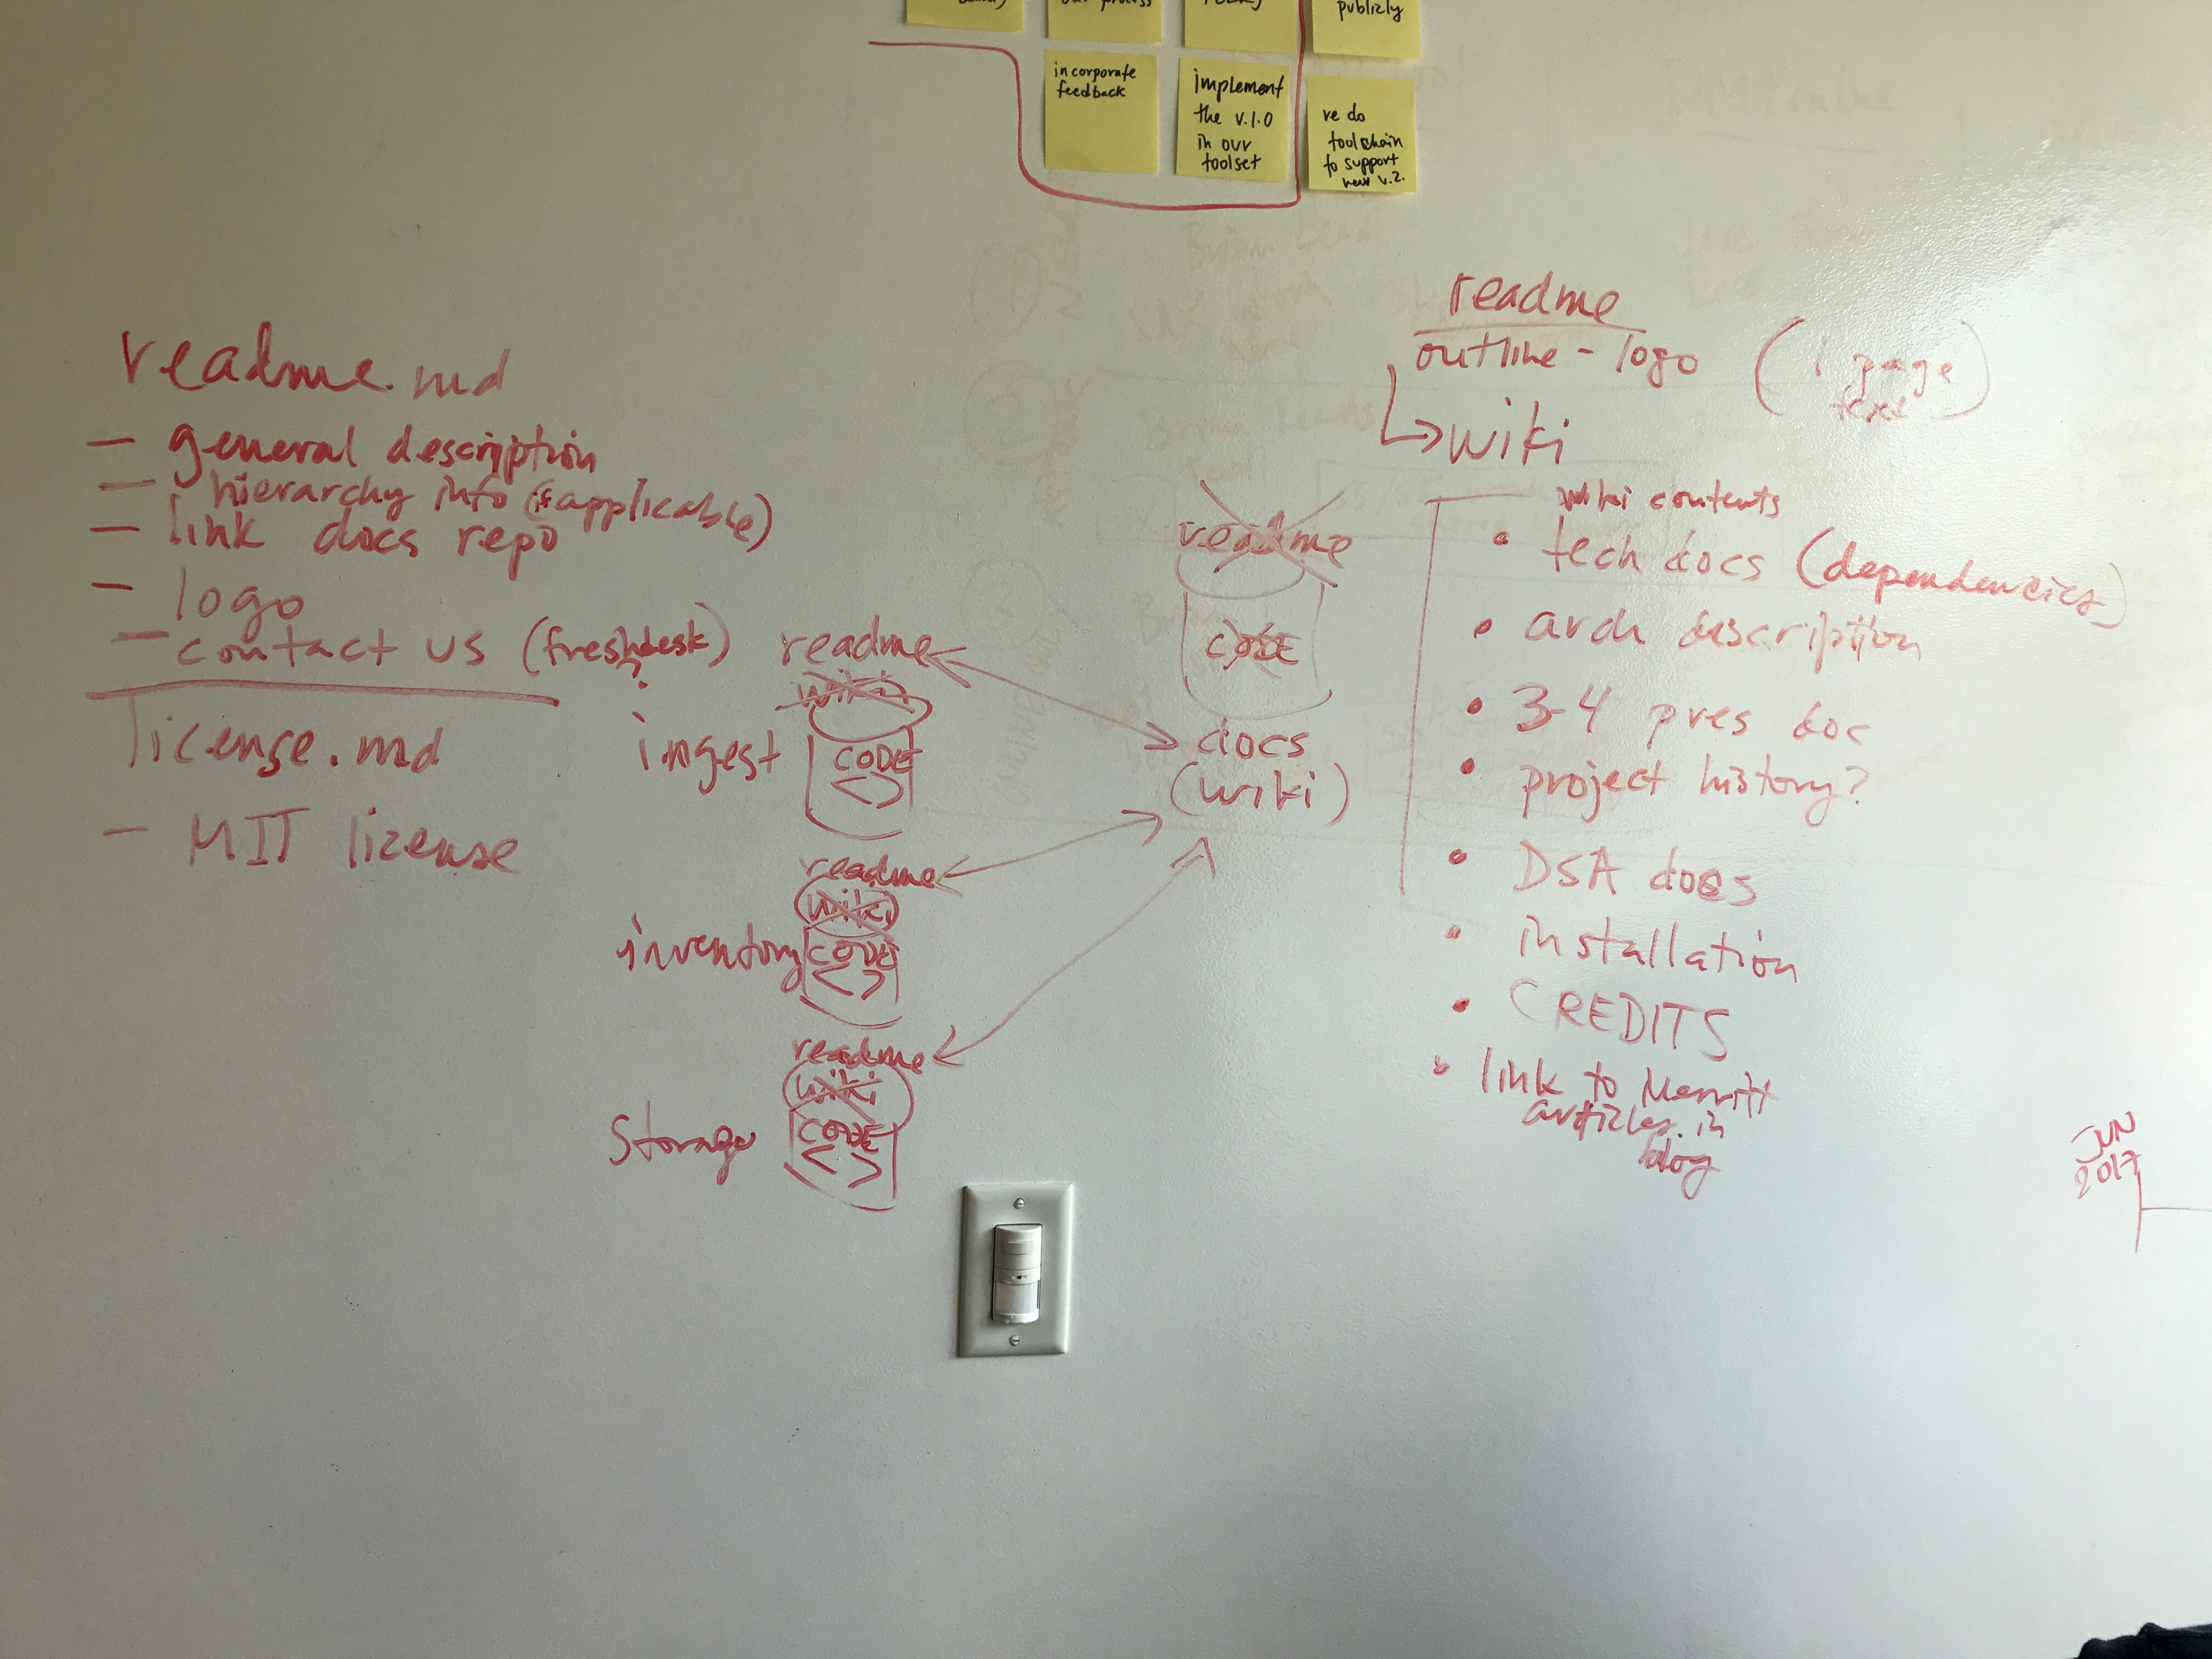 our process
publicly
incorporate
feedback
implement
the v.1.0
in our
toolset
re do
toolchain
to support
new v.2.
readme.md
— general description
— hierarchy info (if applicable)
— link docs repo
— logo
— contact us (freshdesk)
?
license.md
— MIT license
readme
wiki
ingest
CODE
<>
readme
wiki
inventory
CODE
<>
readme
wiki
Storage
CODE
<>
readme
CODE
docs
(wiki)
readme
outline - logo (1 page
text)
→ wiki
wiki contents
• tech docs (dependencies)
• arch description
• 3-4 pres doc
• project history?
• DSA docs
• installation
• CREDITS
• link to Merritt
articles in
blog
JUN
2017